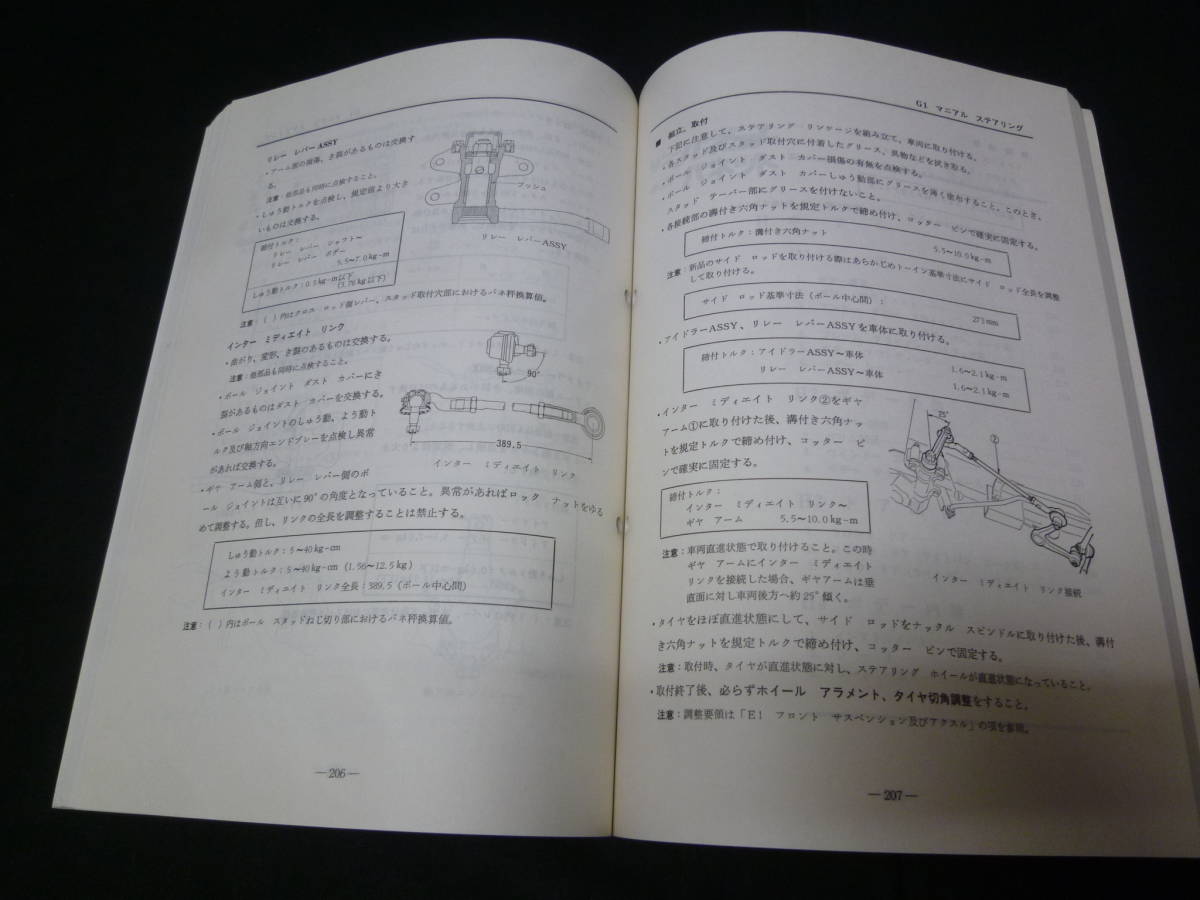 リレー レバーASSY
・アーム部の損傷、き裂があるものは交換す
る。
注意：他部品も同時に点検すること。
・しゅう動トルクを点検し、規定値より大き
いものは交換する。
締付トルク：
リレー レバー シャフト〜
リレー レバー ボデー
5.5〜7.0kg-m
しゅう動トルク：0.5kg-m以下
(3.76kg以下)
注意：( )内はクロス ロッド側レバー、スタッド取付穴部におけるバネ秤換算値。
ブッシュ
リレー レバーASSY
インター ミディエイト リンク
・曲がり、変形、き裂のあるものは交換する。
注意：他部品も同時に点検すること。
・ボール ジョイント ダスト カバーにき
裂があるものはダスト カバーを交換する。
・ボール ジョイントのしゅう動、よう動ト
ルク及び軸方向エンドプレーを点検し異常
があれば交換する。
・ギヤ アーム側と、リレー レバー側のボ
ール ジョイントは互いに90°の角度となっていること。異常があればロック ナットをゆる
めて調整する。但し、リンクの全長を調整することは禁止する。
90°
389.5
インター ミディエイト リンク
しゅう動トルク：5〜40kg-cm
よう動トルク：5〜40kg-cm (1.56〜12.5kg)
インター ミディエイト リンク全長：389.5 (ボール中心間)
注意：( )内はボール スタッドねじ切り部におけるバネ秤換算値。
—206—
G1 マニアル ステアリング
■ 組立、取付
下記に注意して、ステアリング リンケージを組み立て、車両に取り付ける。
・各スタッド及びスタッド取付穴に付着したグリース、異物などを拭き取る。
・ボール ジョイント ダスト カバー損傷の有無を点検する。
・ボール ジョイント ダスト カバーしゅう動部にグリースを薄く塗布すること。このとき、
スタッド テーパー部にグリースを付けないこと。
・各接続部の溝付き六角ナットを規定トルクで締め付け、コッター ピンで確実に固定する。
締付トルク：溝付き六角ナット
5.5〜10.0kg-m
注意：新品のサイド ロッドを取り付ける際はあらかじめトーイン基準寸法にサイド ロッド全長を調整
して取り付ける。
サイド ロッド基準寸法 (ボール中心間)：
273mm
・アイドラーASSY、リレー レバーASSYを車体に取り付ける。
締付トルク：アイドラーASSY〜車体
1.6〜2.1kg-m
リレー レバーASSY〜車体
1.6〜2.1kg-m
・インター ミディエイト リンク②をギヤ
アーム①に取り付けた後、溝付き六角ナッ
トを規定トルクで締め付け、コッター ピ
ンで確実に固定する。
締付トルク：
インター ミディエイト リンク〜
ギヤ アーム 5.5〜10.0kg-m
注意：車両直進状態で取り付けること。この時
ギヤ アームにインター ミディエイト
リンクを接続した場合、ギヤアームは垂
直面に対し車両後方へ約25°傾く。
25°
②
インター ミディエイト リンク接続
・タイヤをほぼ直進状態にして、サイド ロッドをナックル スピンドルに取り付けた後、溝付
き六角ナットを規定トルクで締め付け、コッター ピンで固定する。
注意：取付時、タイヤが直進状態に対し、ステアリング ホイールが直進状態になっていること。
・取付終了後、必らずホイール アラメント、タイヤ切角調整をすること。
注意：調整要領は「E1 フロント サスペンション及びアクスル」の項を参照。
—207—